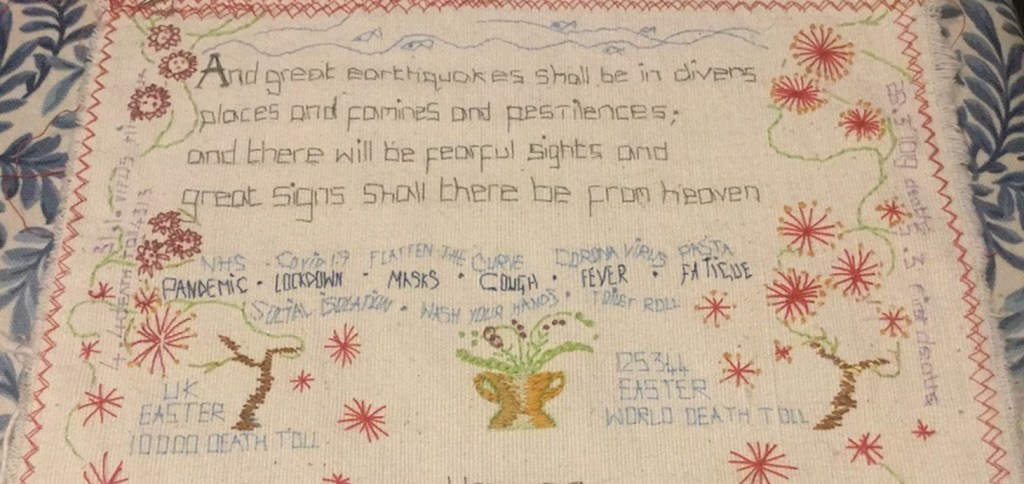 And great earthquakes shall be in divers
places and famines and pestilences;
and there will be fearful sights and
great signs shall there be from heaven
NHS · Covid 19 FLATTEN THE CURVE CORONA VIRUS PASTA
PANDEMIC · LOCKDOWN · MASKS · COUGH · FEVER · FATIGUE
SOCIAL ISOLATION · WASH YOUR HANDS · TOILET ROLL
UK
EASTER
10000 DEATH TOLL
125344
EASTER
WORLD DEATH TOLL